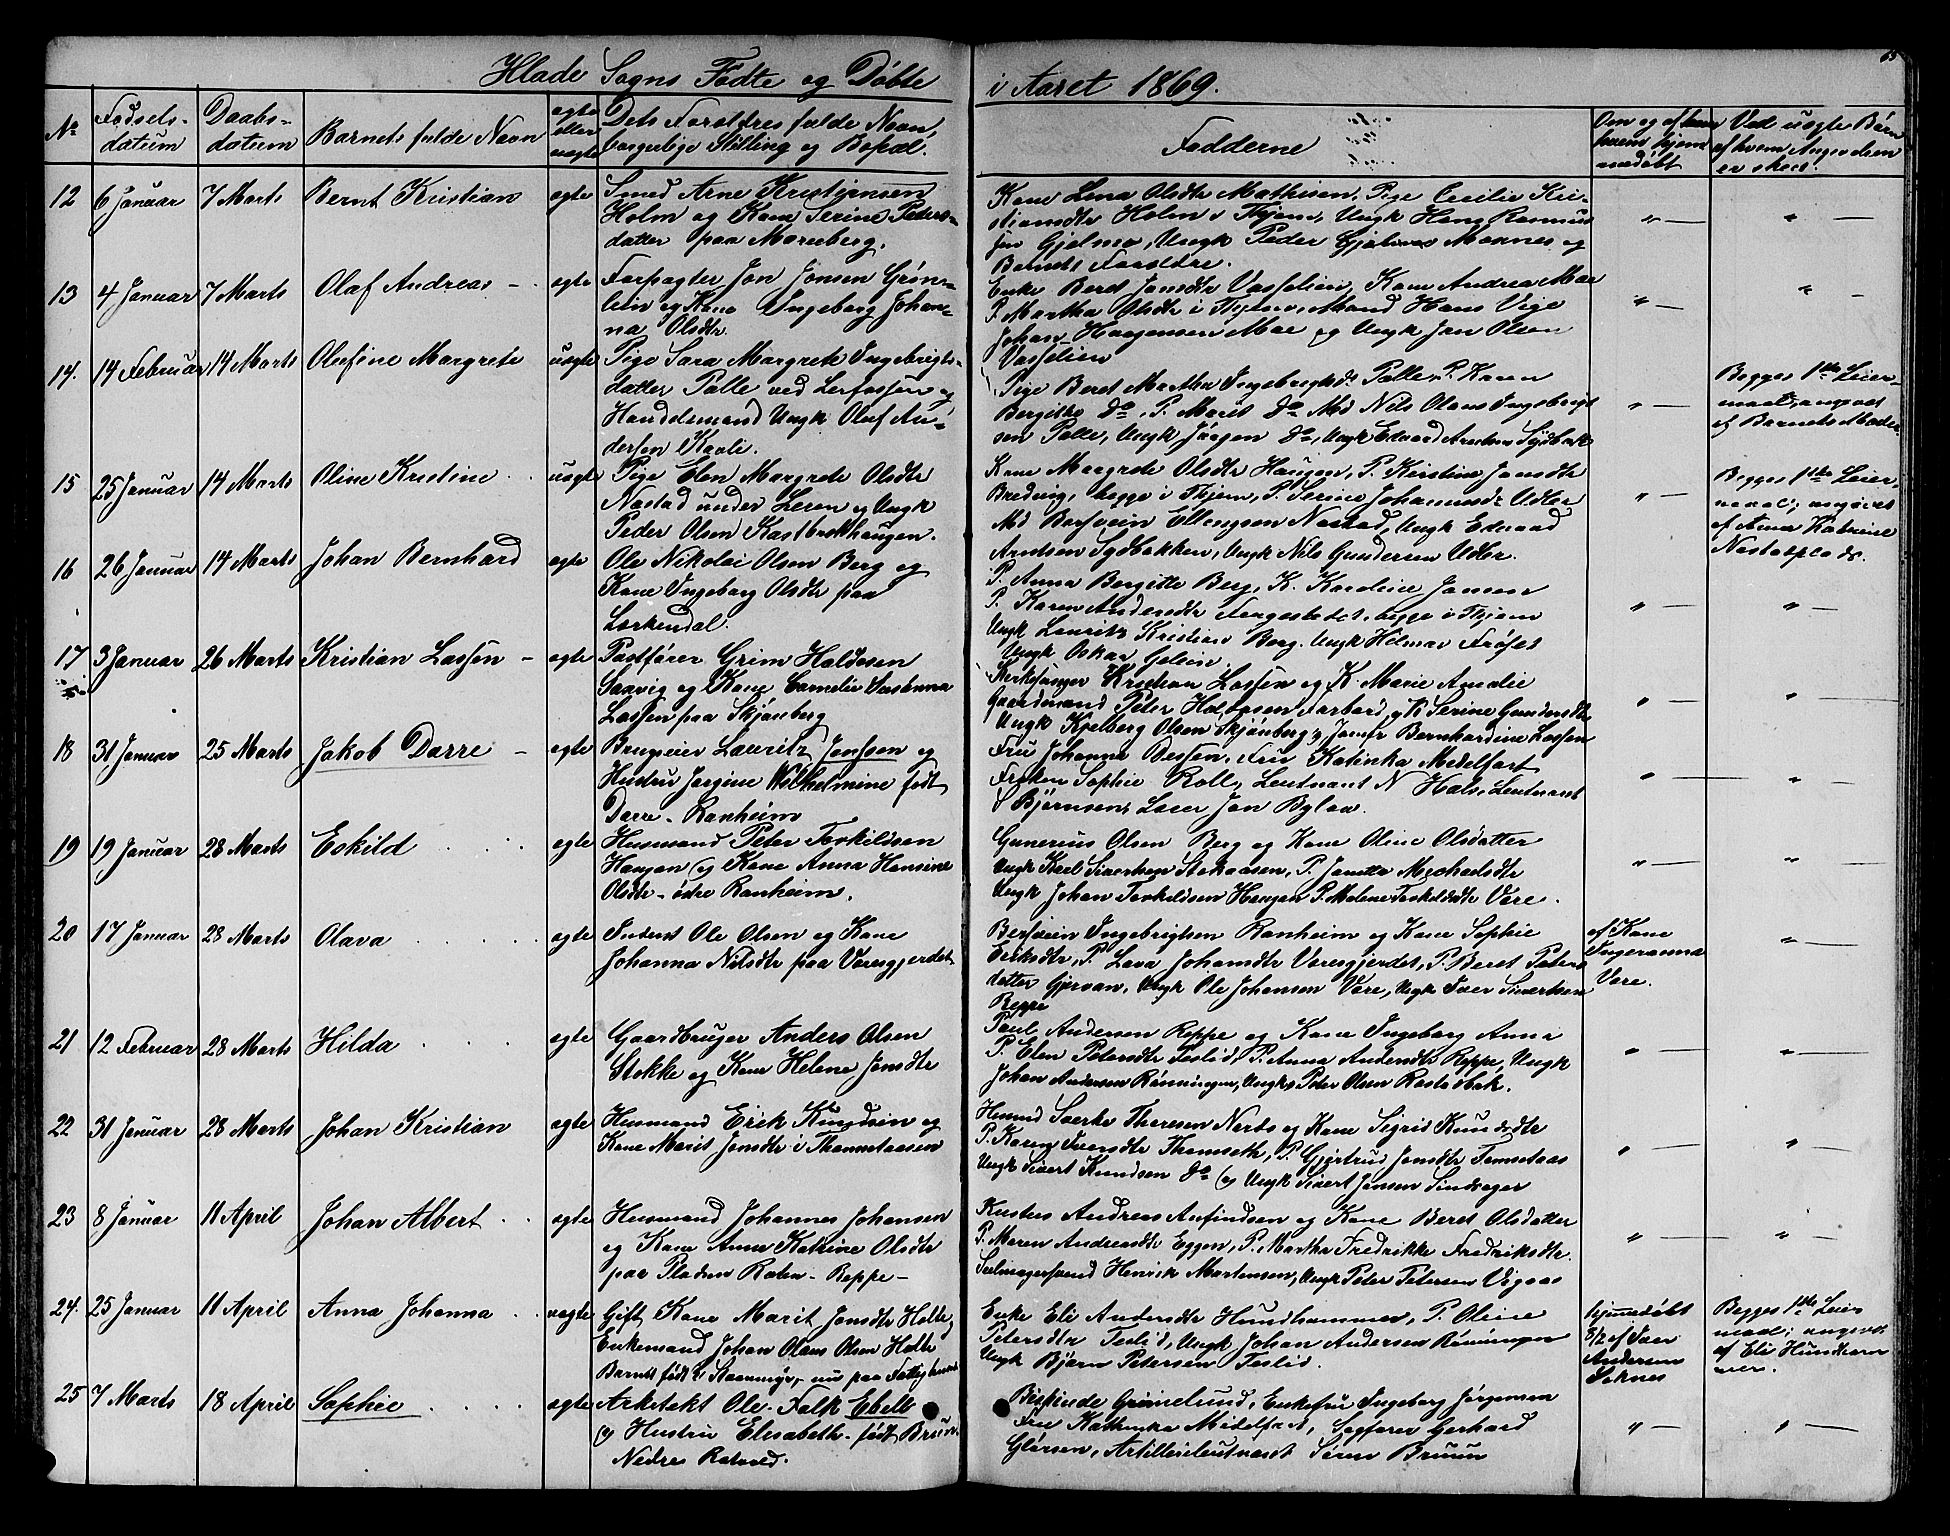 Hlade Sogns Födte og Döbte i Aaret 1869.
65
No
Födsels-
datum
Daabs-
datum
Barnets fulde Navn
ægte
eller
uægte
Dets Forældres fulde Navn,
borgerlige Stilling og Bopæl.
Fadderne
Om og af hvem
hjem
medöbt
Ved uægte Börn
af hvem Angivelsen
er skeet.
12 6 Januar 7 Marts Bernt Kristian ægte
Smed Arne Kristiansen
Holm og Kone Serine Peders-
datter paa Marenberg.
Kone Lena Olsdtr Mathisen, Pige Cecilie Kri-
stiansdtr Holm i Thjem, Ungk Hans Rasmus
sen Gjelme, Ungk Peder Mannes og
Barnets Forældre.
" — " —
13 4 Januar 7 Marts Olaf Andreas - ægte
Forpagter Jon Jonsen Grön-
liv og Kone Ingeborg Johan-
na Olsdtr.
Enke Beret Jonsdtr Vasselien, Kone Andrea Moe
P. Martha Olsdtr i Thjem, Mand Hans Vige
Johan Haagensen Moe og Ungk Jon Olsen
Vasselien
" — " —
14. 14 Februar 14 Marts Olefine Margrete uægte
Pige Sara Margrete Ingebrigts-
datter Palle ved Lerfossen og
Handelsmand Ungk Olaf An-
dersen Kavli.
Pige Beret Martha Ingebrigtsdr Palle, P. Karen
Bergitte do, P. Marit do Md Nils Olaus Ingebrigt
sen Palle, Ungk Jörgen do, Ungk Edvard Arntsen Sydbak
" —
Begges 1ste Leier-
maal, angivet
af Barnets Moder.
15 25 Januar 14 Marts Oline Kristine uægte
Pige Elen Margrete Olsdtr
Nastad under Leren og Ungk
Peder Olsen Kastbrekhaugen.
Kone Margrete Olsdtr Haugen, P. Kristine Jonsdtr
Bredving, begge i Thjem, P. Serine Johannesdr Udler
Md Bersvein Ellingsen Nastad, Ungk Edvard
Arntsen Sydbakken, Ungk Nils Gundersen Udler.
" —
Begges 1ste Leier-
maal; angivet
af Anna Katrine
Nastasplads.
16 26 Januar 14 Marts Johan Bernhard ægte
Ole Nikolai Olsen Berg og
Kone Ingeborg Olsdtr paa
Lerkendal.
P. Anna Bergitte Berg, K. Karoline Jansen
P. Karen Andersdtr Fergestadet, begge i Thjem
Ungk Lauritz Kristian Berg, Ungk Hilmar Fröset
Ungk Oskar Gelein
" — " —
17 3 Januar 26 Marts Kristian Lassen - ægte
Postförer Grim Haldosen
Saxvig og Kone Cornelie Susanna
Lassen paa Skjönberg
Kirkesanger Kristian Lassen og K. Marie Amalie
Gaardmand Peter Haldosen Farbord og K. Serine Gundersdtr
Ungk Kjelberg Olsen Skjönberg og Jomfr Bernhardine Lassen
" — " —
18 31 Januar 25 Marts Jakob Darre - ægte
Brugseier Lauritz Jenssen og
Hustru Jorgine Wilhelmine födt
Darre - Ranheim
Fru Johanna Jenssen, Fru Katinka Medelfart
Fröken Sophie Roll, Leutnant N Hals, Leutnant
S Björnsen, Jon Bylow.
" — " —
19 19 Januar 28 Marts Eskild ægte
Husmand Peter Torkildsen
Haugan og Kone Anna Hansine
Olsdtr - östre Ranheim.
Gunerius Olsen Berg og Kone Oline Olsdatter
Ungk Karl Sivertsen Stokaasen, P. Janetta Michaelsdtr
Ungk Johan Torkildsen Haugan P. Malene Torkildsdtr Være.
" — " —
20 17 Januar 28 Marts Olava ægte
Inderst Ole Olsen og Kone
Johanna Nilsdtr paa Væresgjerdet
Bersvein Ingebrigtsen Ranheim og Kone Sophie
Eriksdtr, P. Lava Johansdtr Væresgjerdet, P. Beret Peters
datter Gjervan, Ungk Ole Johansen Være, Ungk Iver Sivertsen
Reppe
af Kone
Ingeranna
Være.
" —
21 12 Februar 28 Marts Hilda ægte
Gaardbruger Anders Olsen
Stokke og Kone Helene Jonsdtr
Paul Andersen Reppe og Kone Ingeborg Anna
P. Elen Petersdtr Teslid, P. Anna Andersdtr Reppe, Ungk
Johan Andersen Rönningen, Ungk Peter Olsen Rostadbak.
" — " —
22 31 Januar 28 Marts Johan Kristian ægte
Husmand Erik Knudsen og
Kone Marit Jonsdtr i Thammetaasen
Husmd Sverke Theresen Nerbs og Kone Sigrid Knudsdtr
P. Karen Iversdtr Thamseth, P. Gjertrud Jonsdtr Tomsetaas
Ungk Sivert Knudsen do og Ungk Sivert Jensen Sindsager
" — " —
23 8 Januar 11 April Johan Albert ægte
Husmand Johannes Johansen
og Kone Anna Katrine Olsdtr
paa Pladsen Raten - Reppe -
Andreas Anfindsen og Kone Beret Olsdatter
P. Maren Andreasdtr Eggen, P. Martha Fredrikke Fredriksdtr.
Sadelmagersvend Henrik Martensen, Ungk Peter Petersen Vigaas
" — " —
24. 25 Januar 11 April Anna Johanna uægte
Gift Kone Marit Jonsdtr Holte,
Enkemand Johan Olaus Olsen Holte
Barnet födt i , nu paa Fattighuset
Enke Eli Andersdtr Hundhammer, P. Oline
Petersdtr Teslid, Ungk Johan Andersen Rönningen
Ungk Björn Petersen Teslid.
hjemmedöbt
8/2 af Iver
Andersen
Saxnes
Begges 1ste Leier
maal; angivet
af Eli Hundham
mer.
25 7 Marts 18 April Sophie ægte
Arkitekt Ole Falk Ebell
og Hustru Elisabeth födt Bruun
Nedre Rotvold.
Bispinde Grimelund, Enkefru Ingeborg Jörgensen
Fru Kathinka Midelfart, Sagförer Gerhard
Glörsen, Artillerileutnant Sören Bruun
" — " —